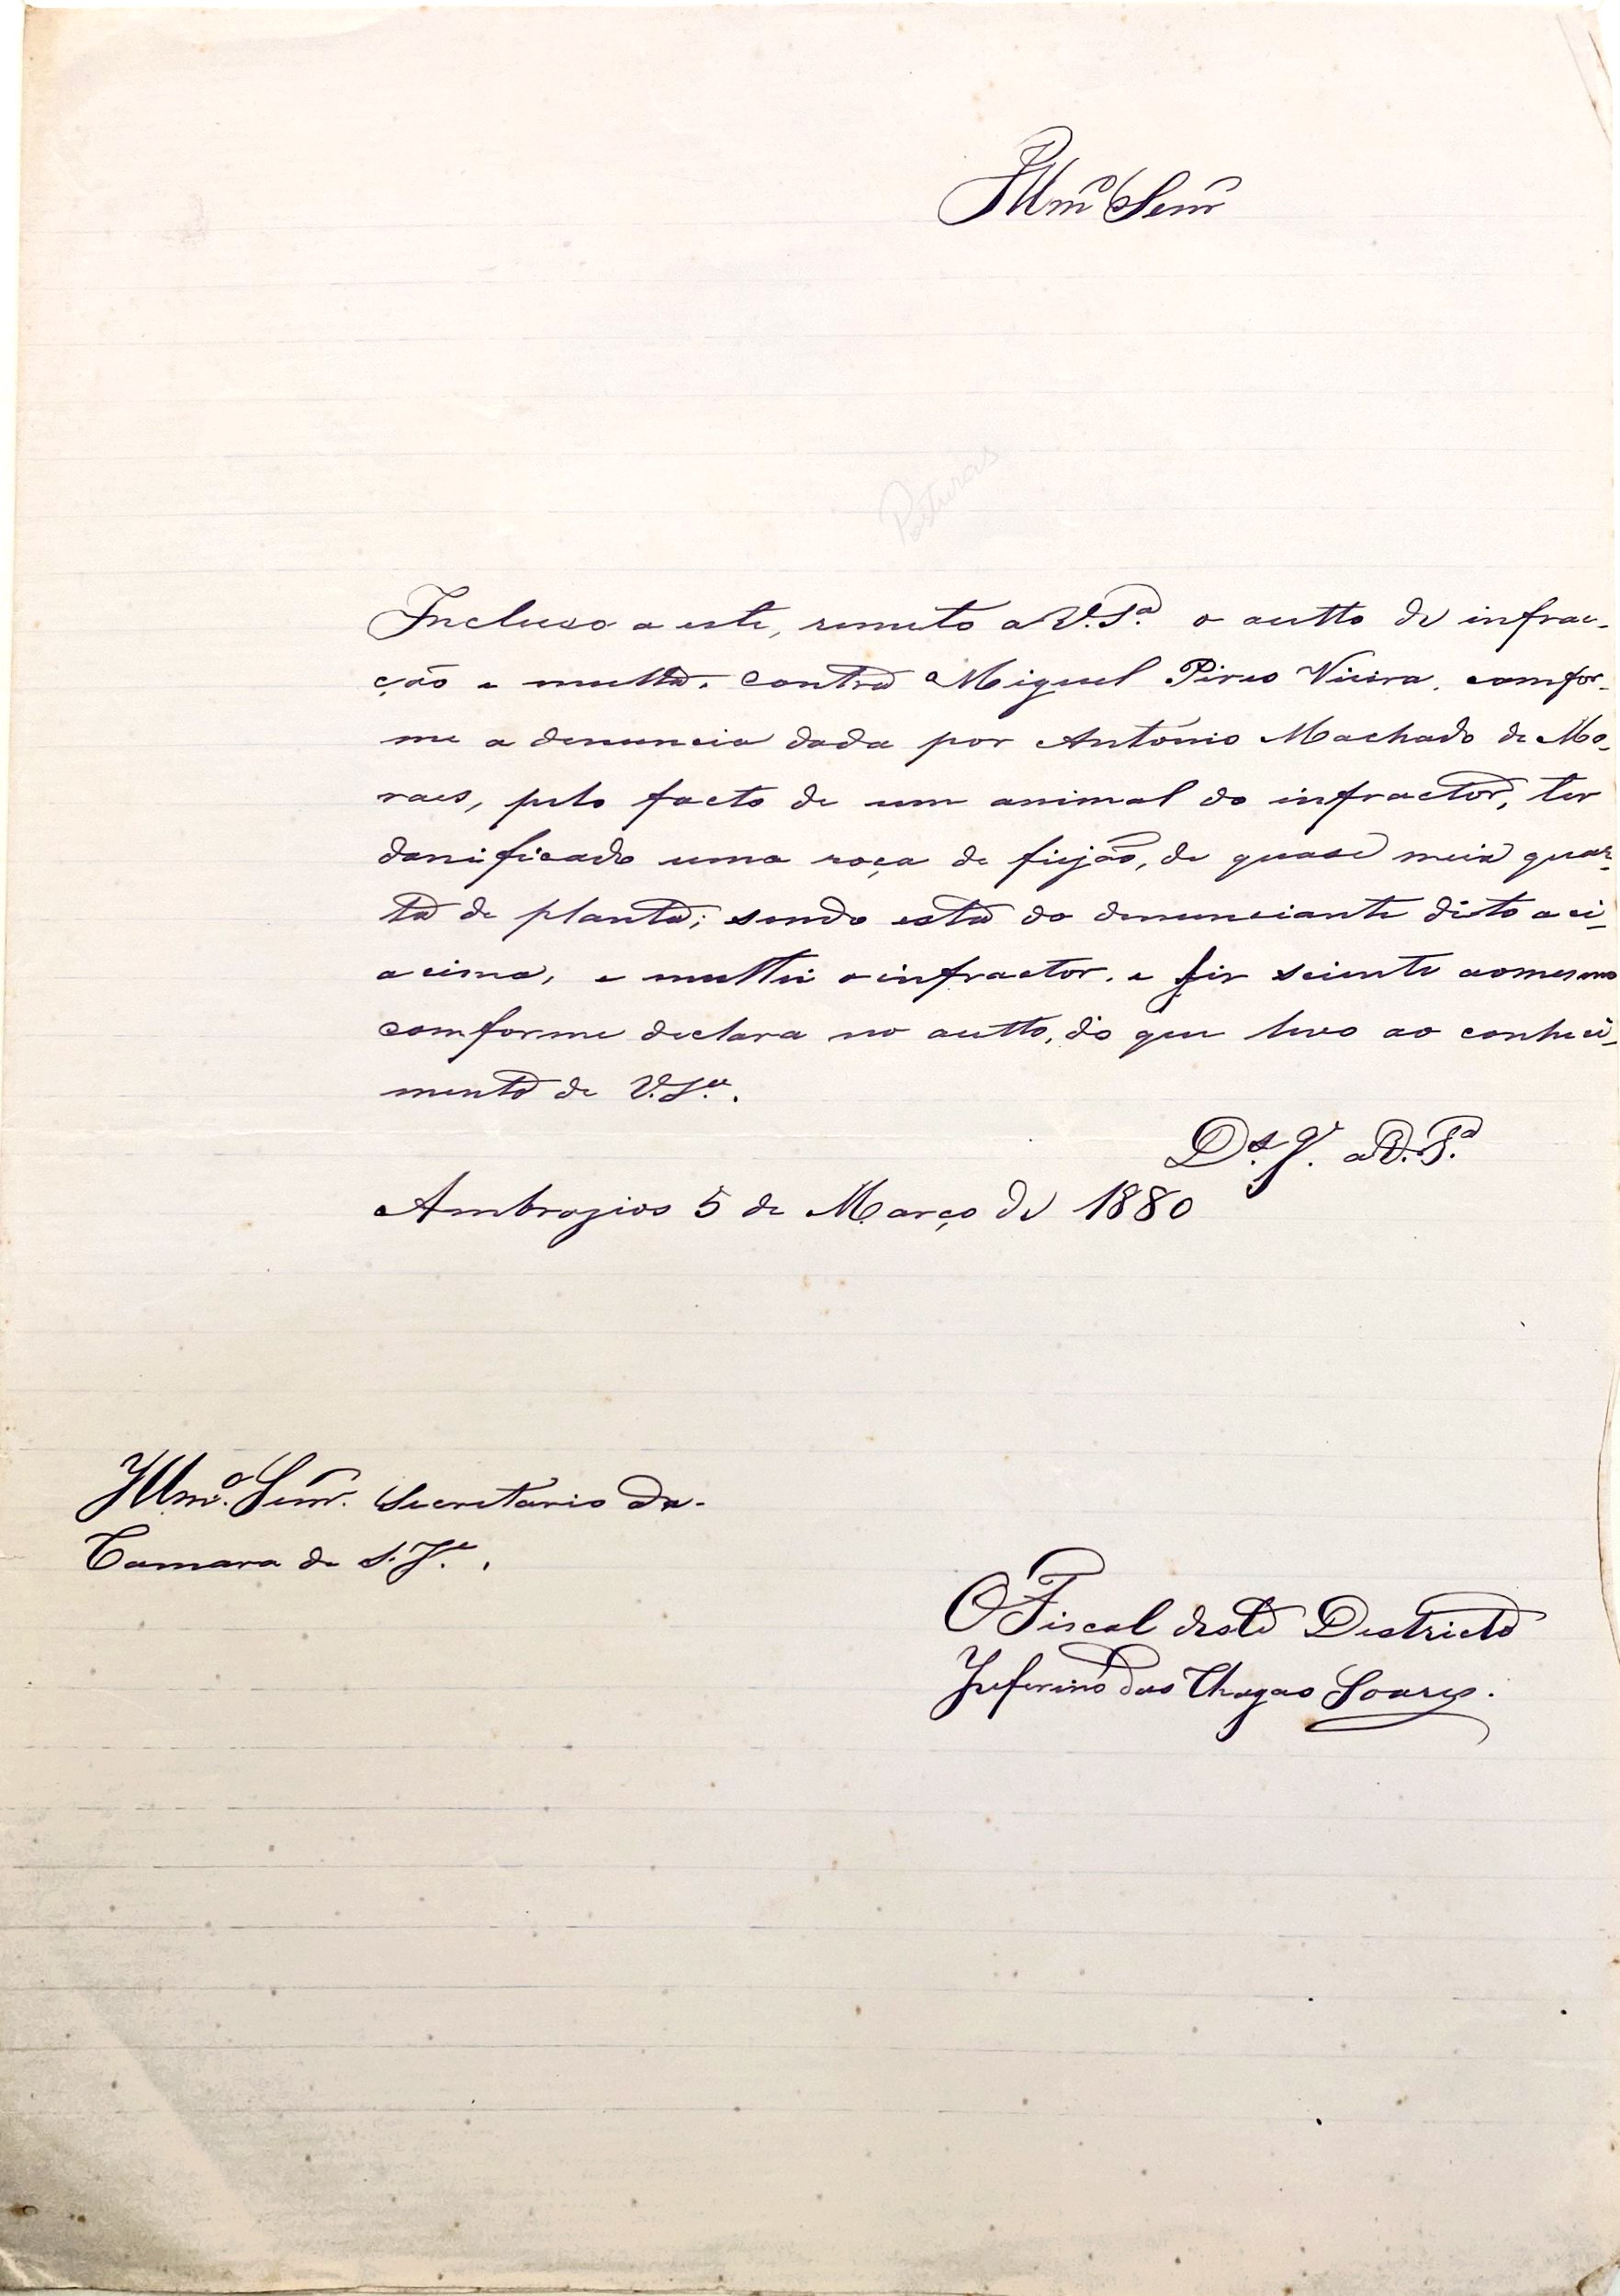 Illmº Senr
Posturas
Incluso a este, remeto a V.Sª o autto de infrac-
ção e multta. contra Miguel Pires Vieira. comfor-
me a denuncia dada por Antonio Machado de Mo-
raes, pelo facto de um animal do infractor, ter
danificado uma roça de fiejão, de quase meia quar-
ta de planta; sendo esta do denunciante dicto aci-
acima, e multtei o infractor. e fis sciente ao mesmo
comforme declara no autto, do que levo ao conheci-
mento de V.Sª.
Ds. G. a V.Sª
Ambrozios 5 de Março de 1880
Illmº. Senr. Secretario da-
Camara de S. Je.
O Fiscal deste Destricto
Zeferino das Chagas Soares.